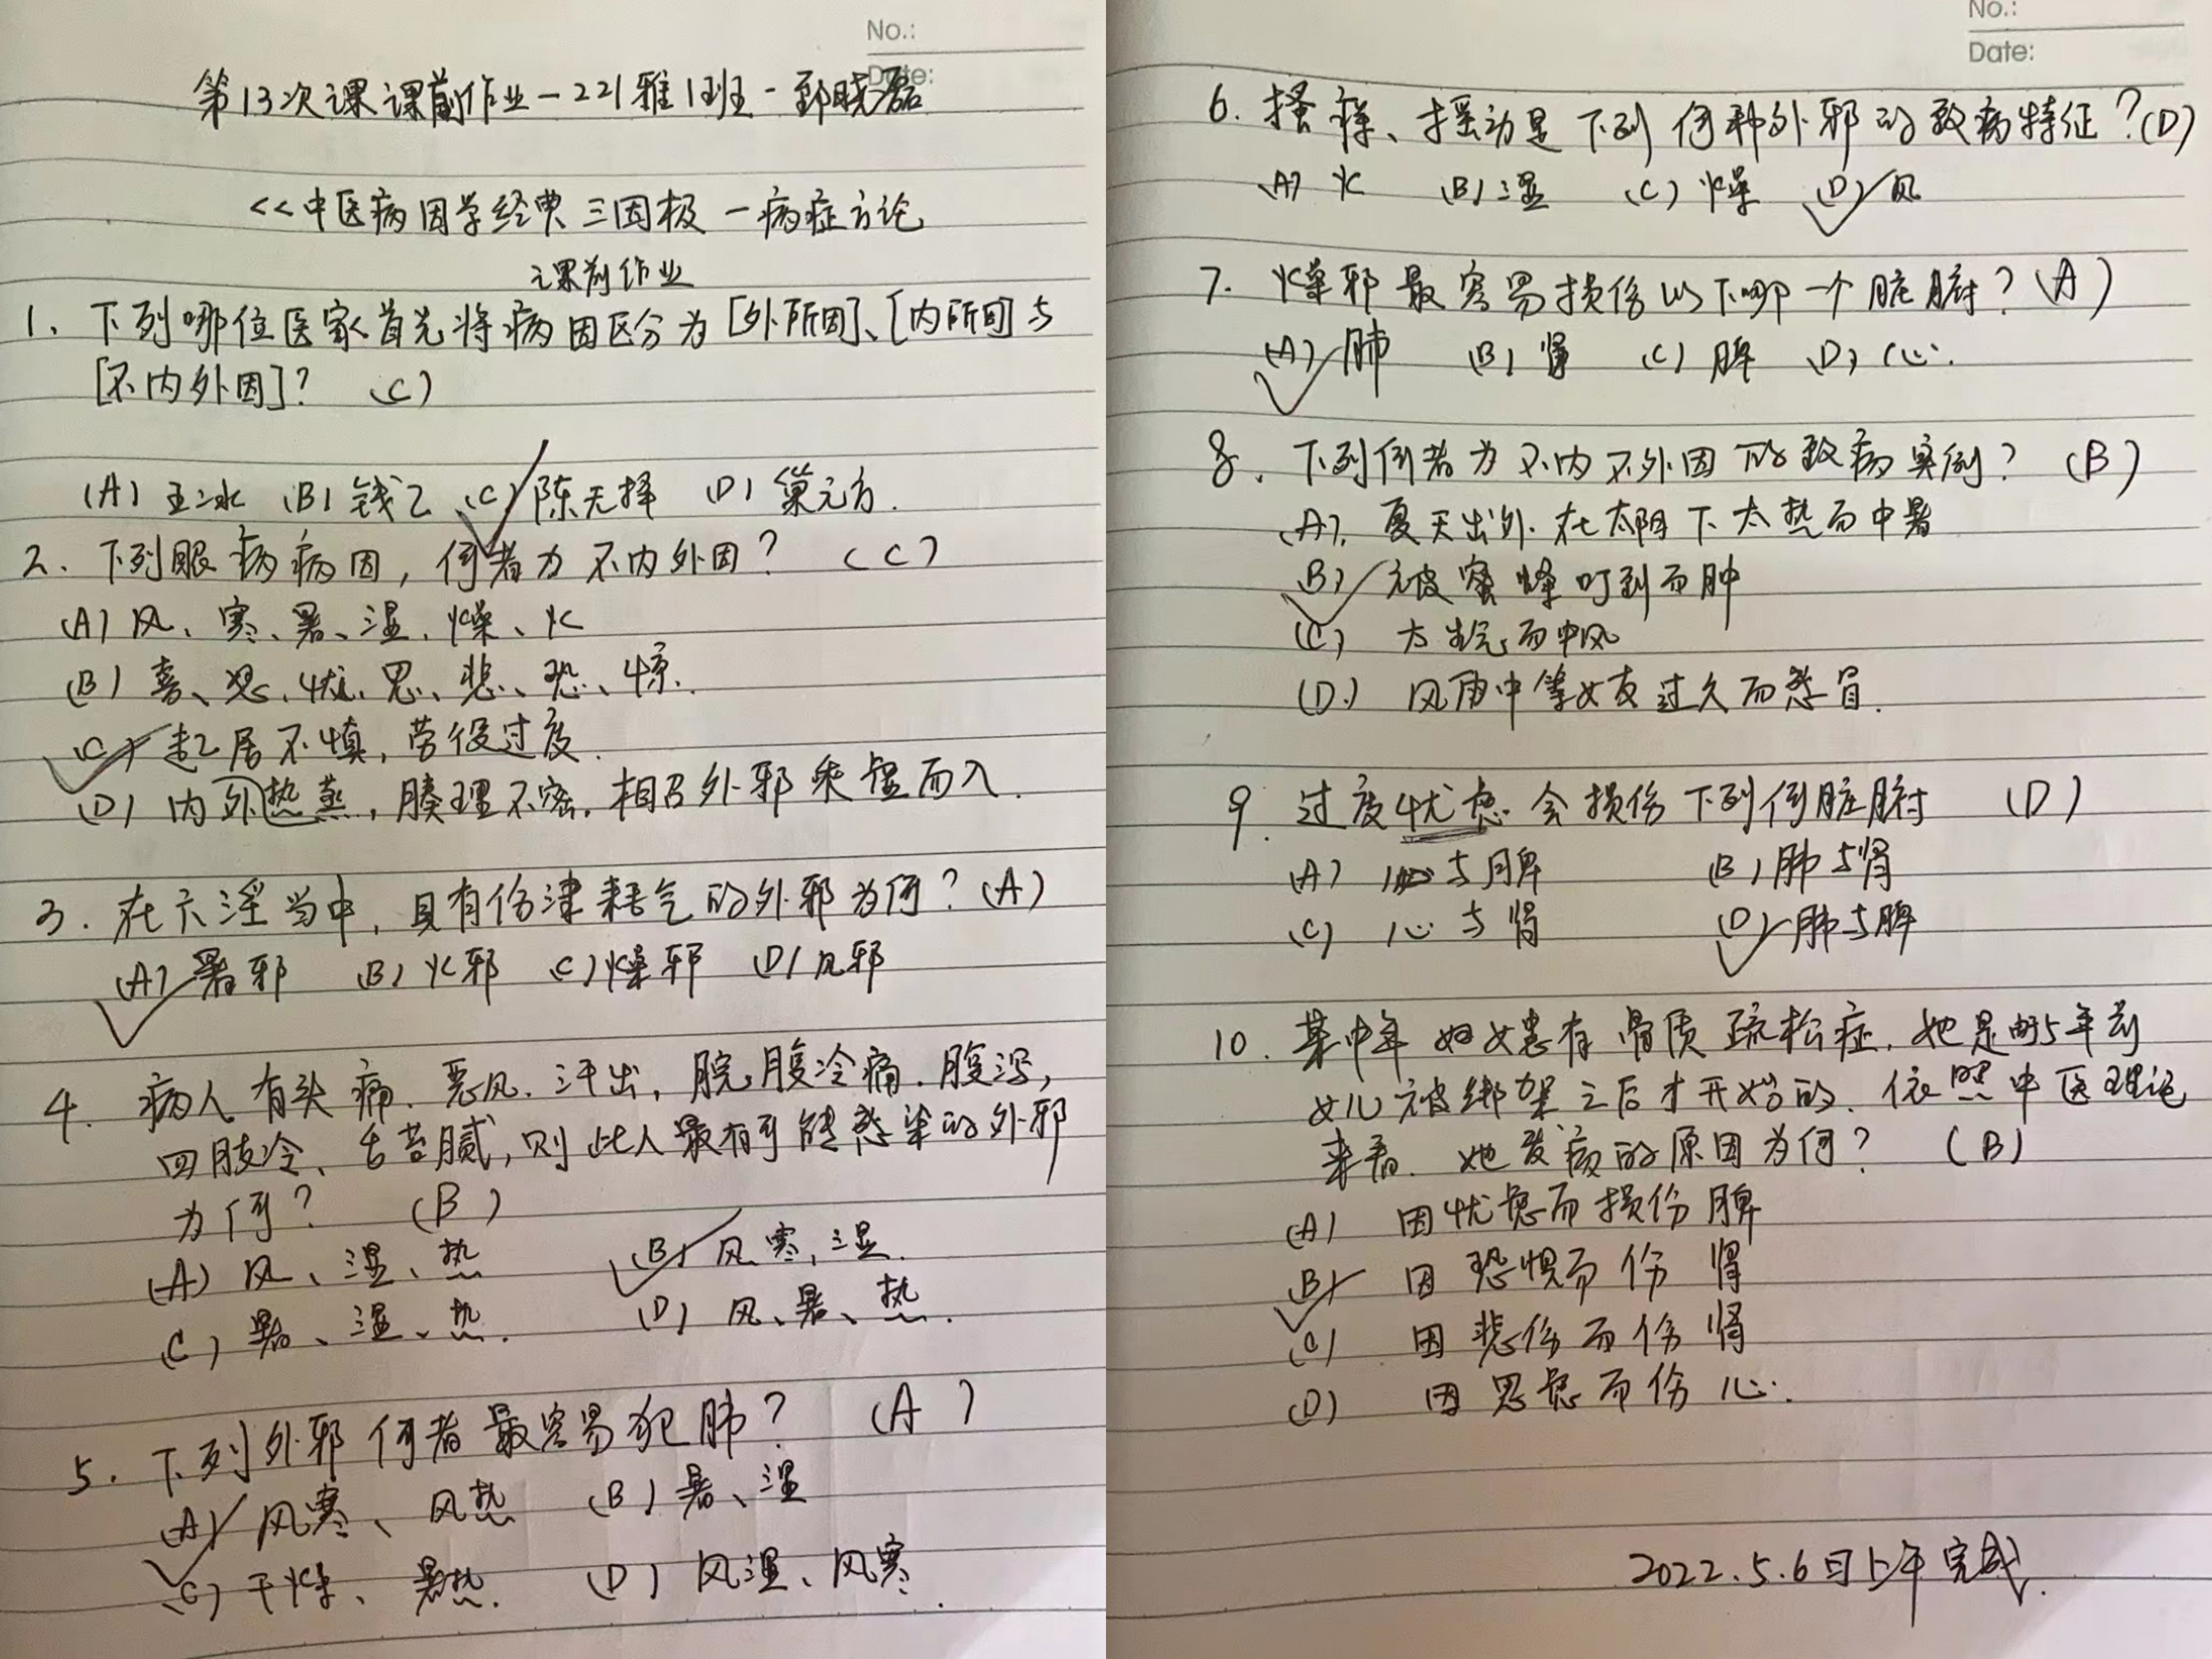 No.:
Date:
第13次课课前作业-221雅1班-郅晓磊
<<中医病因学经典三因极一病症方论
课前作业
1、下列哪位医家首先将病因区分为[外所因]、[内所因]与
[不内外因]? (C)
(A) 王冰 (B) 钱乙 (C) 陈无择 (D) 巢元方.
2. 下列眼病病因,何者为不内外因? (C)
(A) 风、寒、暑、湿、燥、火
(B) 喜、怒、忧、思、悲、恐、惊.
(C) 起居不慎,劳役过度.
(D) 内外热蒸,腠理不密,相召外邪乘虚而入.
3. 在六淫当中,具有伤津耗气的外邪为何?(A)
(A) 暑邪 (B) 火邪 (C) 燥邪 (D) 风邪
4. 病人有头痛、恶风、汗出,脘腹冷痛、腹泻,
四肢冷、舌苔腻,则此人最有可能感染的外邪
为何? (B)
(A) 风、湿、热 (B) 风寒,湿.
(C) 暑、湿、热. (D) 风、暑、热.
5. 下列外邪何者最容易犯肺? (A)
(A) 风寒、风热 (B) 暑、湿
(C) 干燥、暑热. (D) 风湿、风寒.
No.:
Date:
6. 搔痒、摇动是下列何种外邪的致病特征?(D)
(A) 火 (B) 湿 (C) 燥 (D) 风
7. 燥邪最容易损伤以下哪一个脏腑?(A)
(A) 肺 (B) 肾 (C) 脾 (D) 心.
8. 下列何者为不内不外因的致病实例? (B)
(A). 夏天出外在太阳下太热而中暑
(B) 被蜜蜂叮到而肿
(C) 大生气而中风
(D.) 风雨中等女友过久而感冒.
9. 过度忧虑会损伤下列何脏腑 (D)
(A) 心与脾 (B) 肺与肾
(C) 心与肾 (D) 肺与脾
10. 某中年妇女患有骨质疏松症,她是由5年前
女儿被绑架之后才开始的.依照中医理论
来看.她发病的原因为何? (B)
(A) 因忧虑而损伤脾
(B) 因恐惧而伤肾
(C) 因悲伤而伤肾
(D) 因思虑而伤心.
2022.5.6日上午完成.